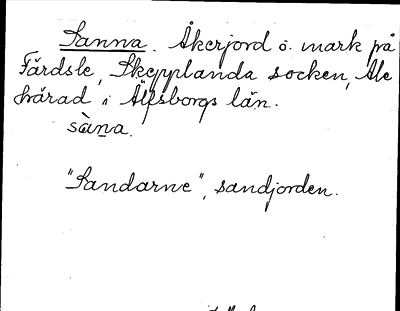 Sanna. Åkerjord o. mark på
Färdsle, Skepplanda socken, Ale
härad i Älfsborgs län.
sàna.
"Sandarne", sandjorden.